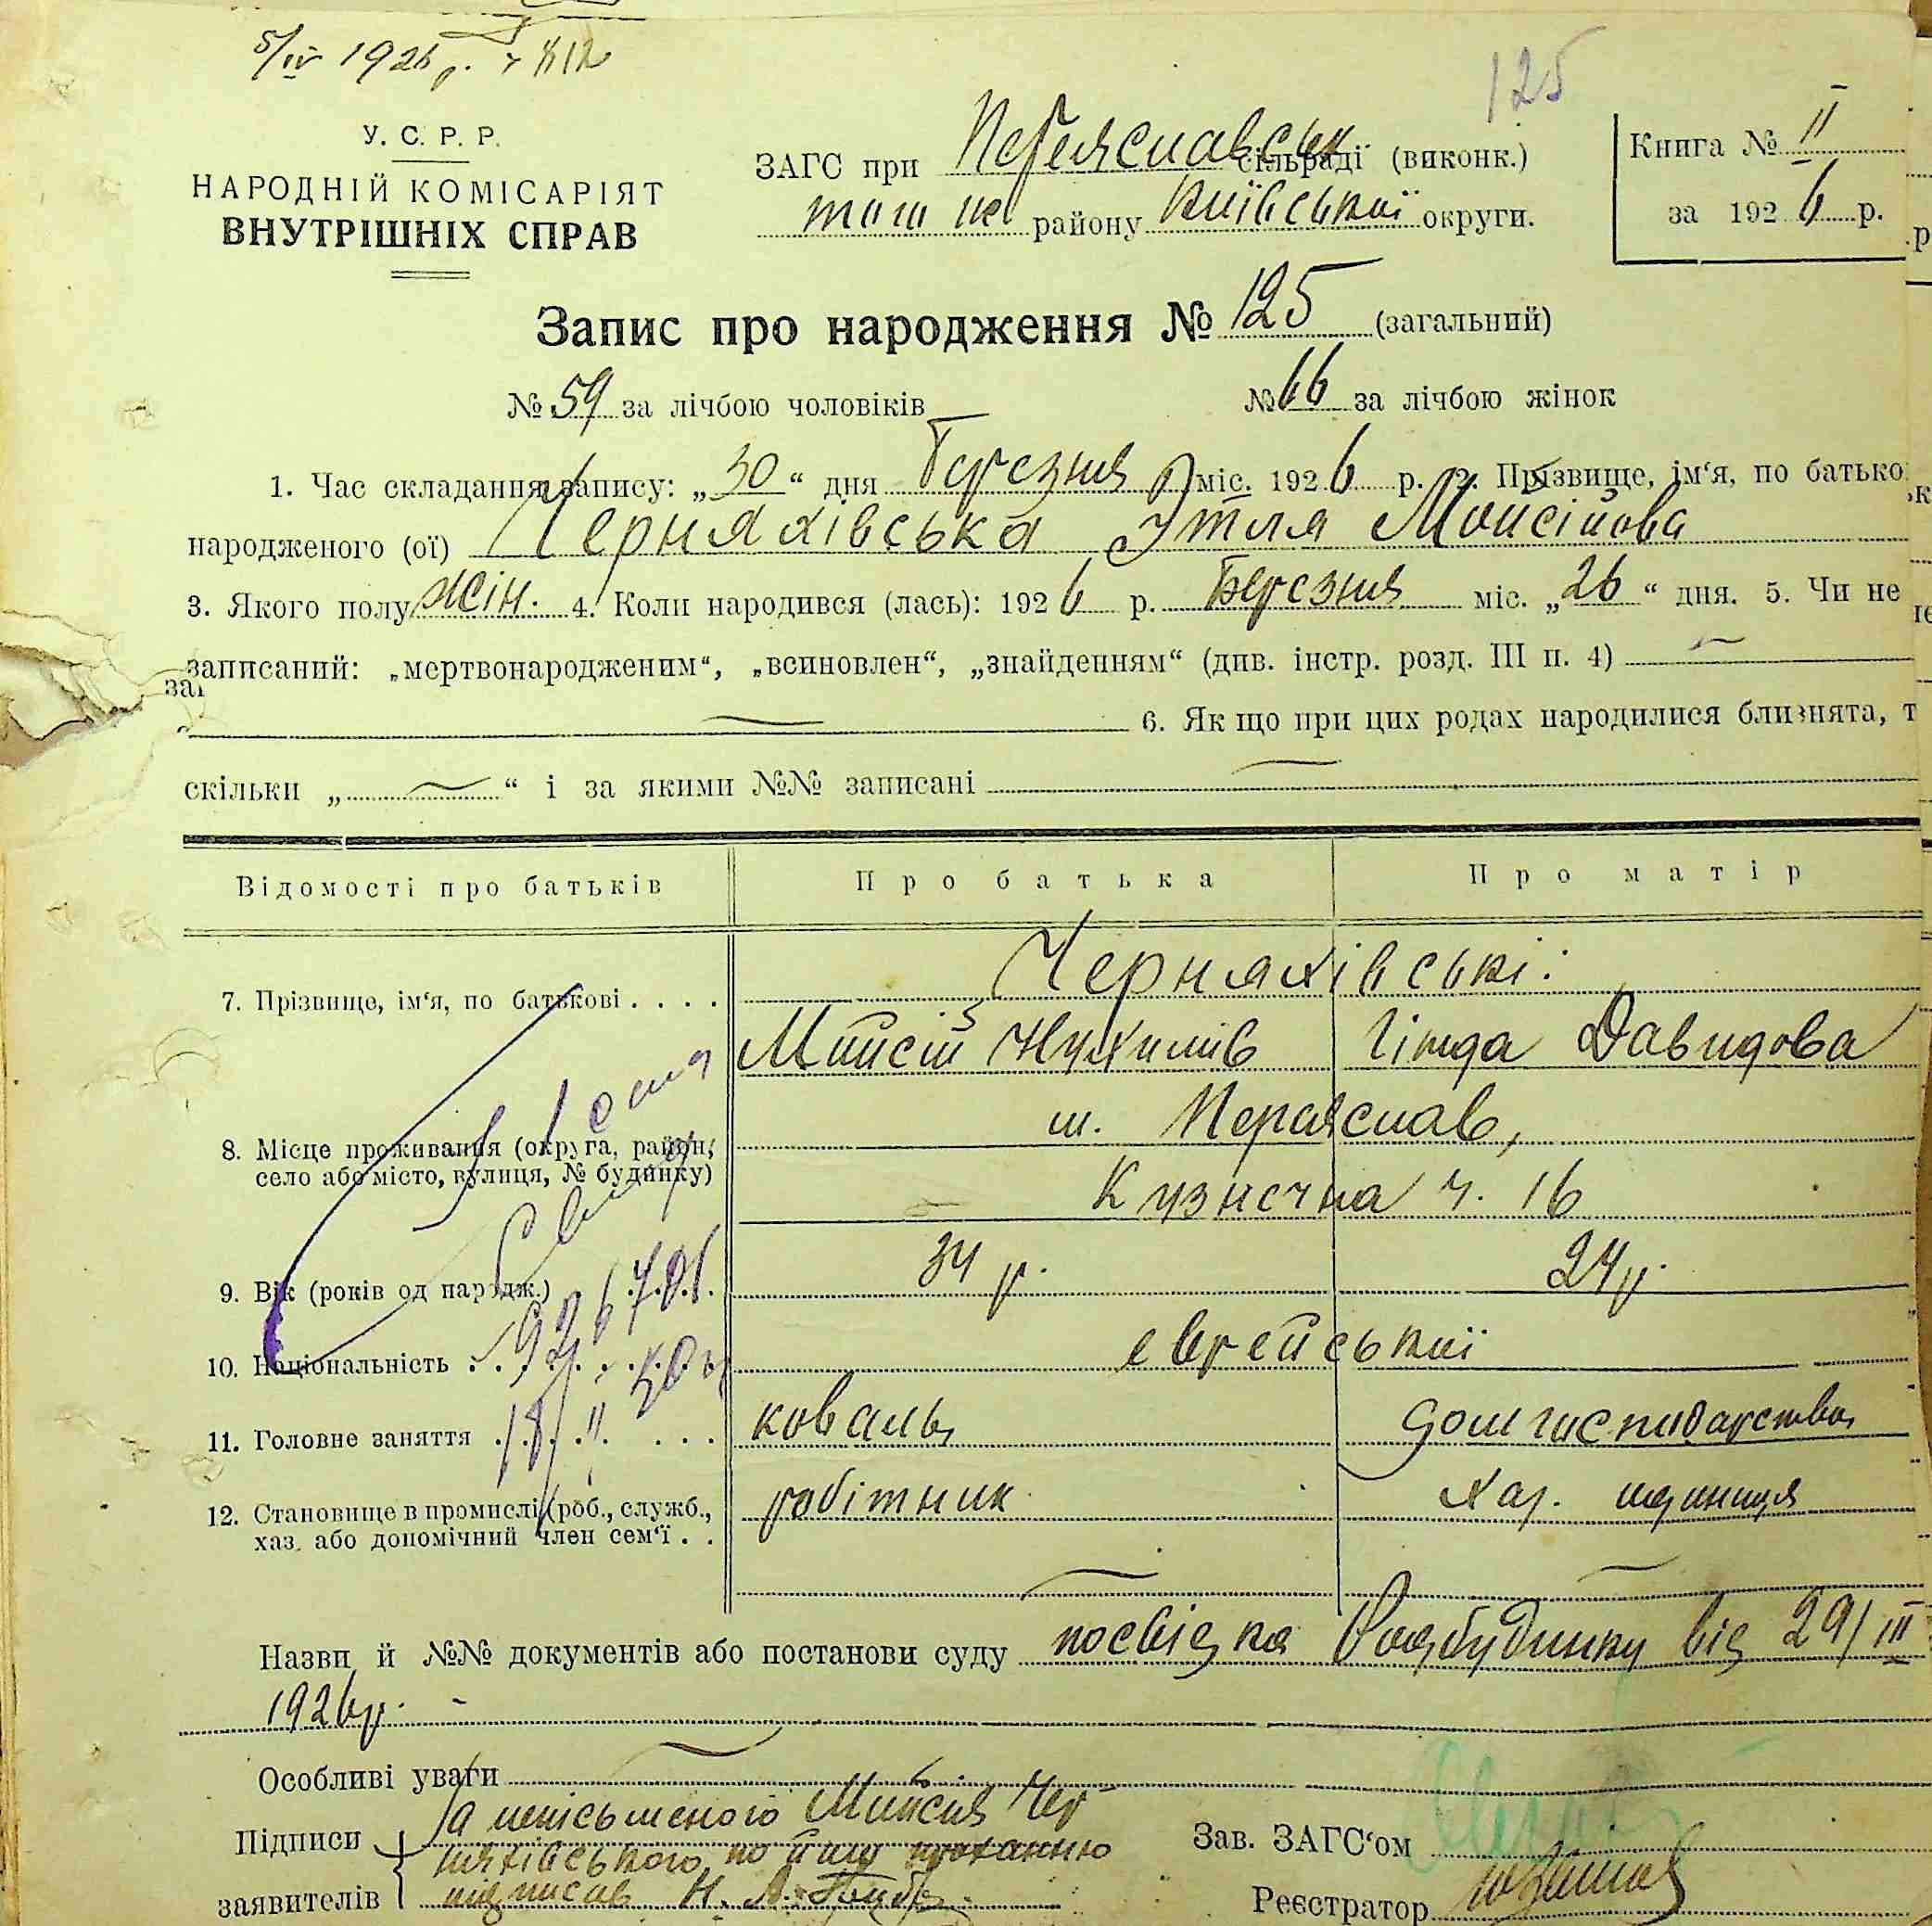 5/IV 1926 р.
125
У. С. Р. Р.
НАРОДНІЙ КОМІСАРІЯТ
ВНУТРІШНІХ СПРАВ
ЗАГС при Переяславськ сільраді (виконк.)
того ж району Київської округи.
Книга № II
за 1926 р.
Запис про народження № 125 (загальний)
№ 59 за лічбою чоловіків № 66 за лічбою жінок
1. Час складання запису: „30“ дня Березня міс. 1926 р. 2. Прізвище, ім'я, по батько
народженого (ої) Черняхівська Этля Мойсійова
3. Якого полу жін. 4. Коли народився (лась): 1926 р. Березня міс. „26“ дня. 5. Чи не
записаний: „мертвонародженим“, „всиновлен“, „знайденням“ (див. інстр. розд. III п. 4)
6. Як що при цих родах народилися близнята, т
скільки „ “ і за якими №№ записані
Відомості про батьків Про батька Про матір
7. Прізвище, ім'я, по батькові . . . . Черняхівські:
Мойсій Нухимів Гітда Давидова
8. Місце проживання (округа, район, м. Переяслав,
село або місто, вулиця, № будинку) Кузнечна ч. 16
9. Вік (років од народж.) 34 р. 24 р.
10. Національність єврейської
11. Головне заняття коваль дом господарство
12. Становище в промислі (роб., служб., робітник Хаз.
хаз. або допоміжний член сем'ї . .
Назви й №№ документів або постанови суду посвідка від 29/III
1926 р.
Особливі уваги
Підписи За неписьменого Мойсія Чер-
няхівського по його проханню
заявителів підписав
Зав. ЗАГС'ом
Реєстратор